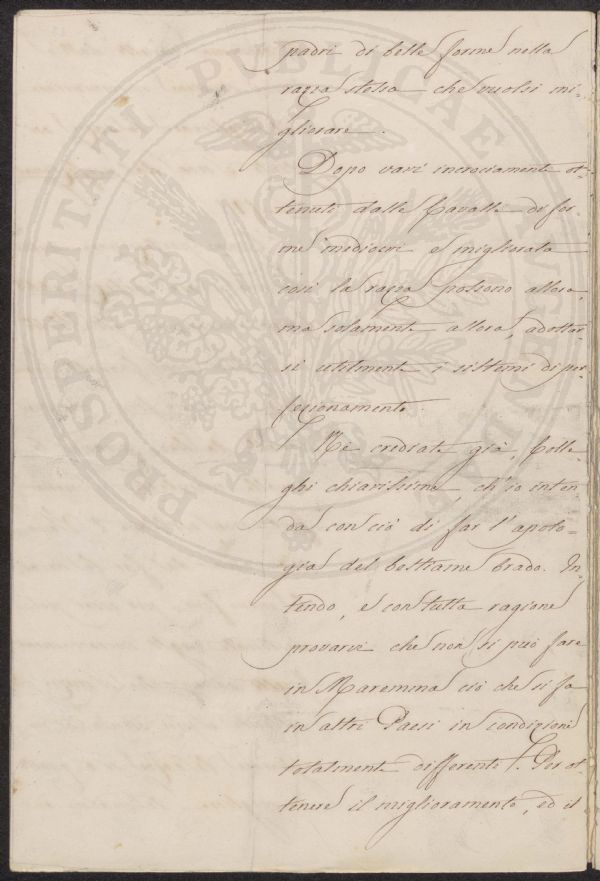 padri di belle forme nella
razza stessa che vuolsi mi-
gliorare.
Dopo vari incrociamenti ot-
tenuti dalle Cavalle di for-
me mediocri e migliorata
così la razza possono allora,
ma solamente allora, adottar-
si utilmente i sistemi di per-
fezionamento.
Nè crediate già, Colle-
ghi chiarissimi, ch'io inten-
da con ciò di far l'apolo-
gia del bestiame brado. In-
tendo, e con tutta ragione
provarvi che non si può fare
in Maremma ciò che si fa
in altri Paesi in condizioni
totalmente differenti. Per ot-
tenere il miglioramento, ed il
PROSPERITATI PUBLICAE AUGENDAE